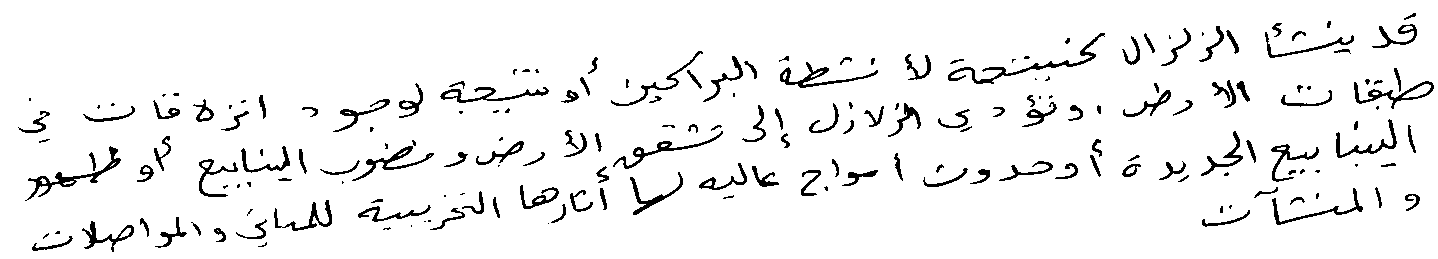 قد ينشأ الزلزال كنتيجة لأنشطة البراكين أو نتيجة لوجود انزلاقات في
طبقات الأرض. وتؤدي الزلازل إلى تشقق الأرض ونضوب الينابيع أو ظهور
الينابيع الجديدة أو حدوث أمواج عاليه لها أثارها التخريبية للمباني والمواصلات
والمنشآت